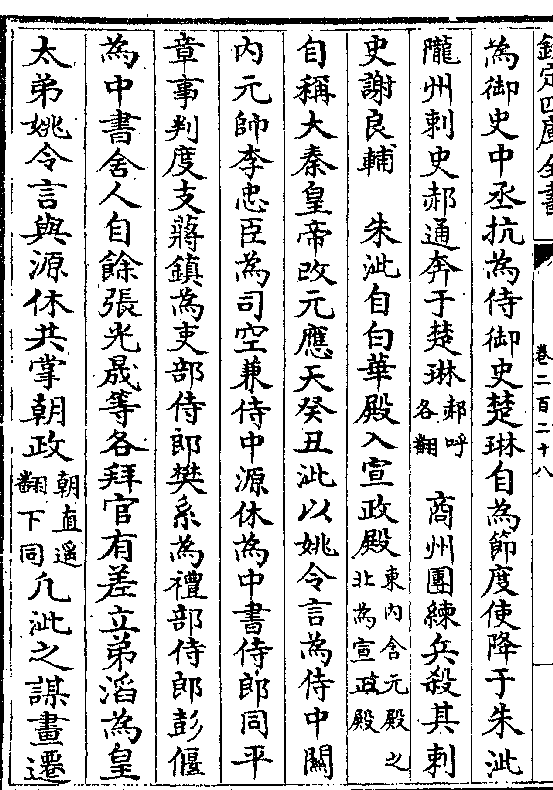 欽定四庫全書
卷二百二十八
為御史中丞抗為侍御史楚琳自為節度使降于朱泚
隴州刺史郝通奔于楚琳郝呼各翻　商州團練兵殺其刺
史謝良輔　朱泚自白華殿入宣政殿東内含元殿之北為宣政殿
自稱大秦皇帝改元應天癸丑泚以姚令言為侍中關
内元帥李忠臣為司空兼侍中源休為中書侍郎同平
章事判度支蔣鎮為吏部侍郎樊系為禮部侍郎彭偃
為中書舍人自餘張光晟等各拜官有差立弟滔為皇
太弟姚令言與源休共掌朝政朝直遥翻下同凡泚之謀畫遷